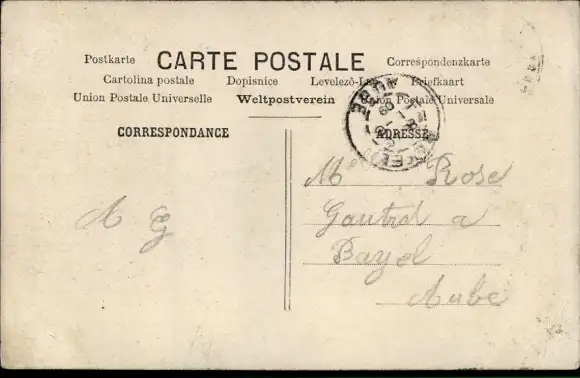 Postkarte CARTE POSTALE Correspondenzkarte
Cartolina postale Dopisnice Levelezö-Lap Briefkaart
Union Postale Universelle Weltpostverein Union Postale Universale
CORRESPONDANCE
ADRESSE
AUBE
09
A G
M Rose
a
Bayel
Aube